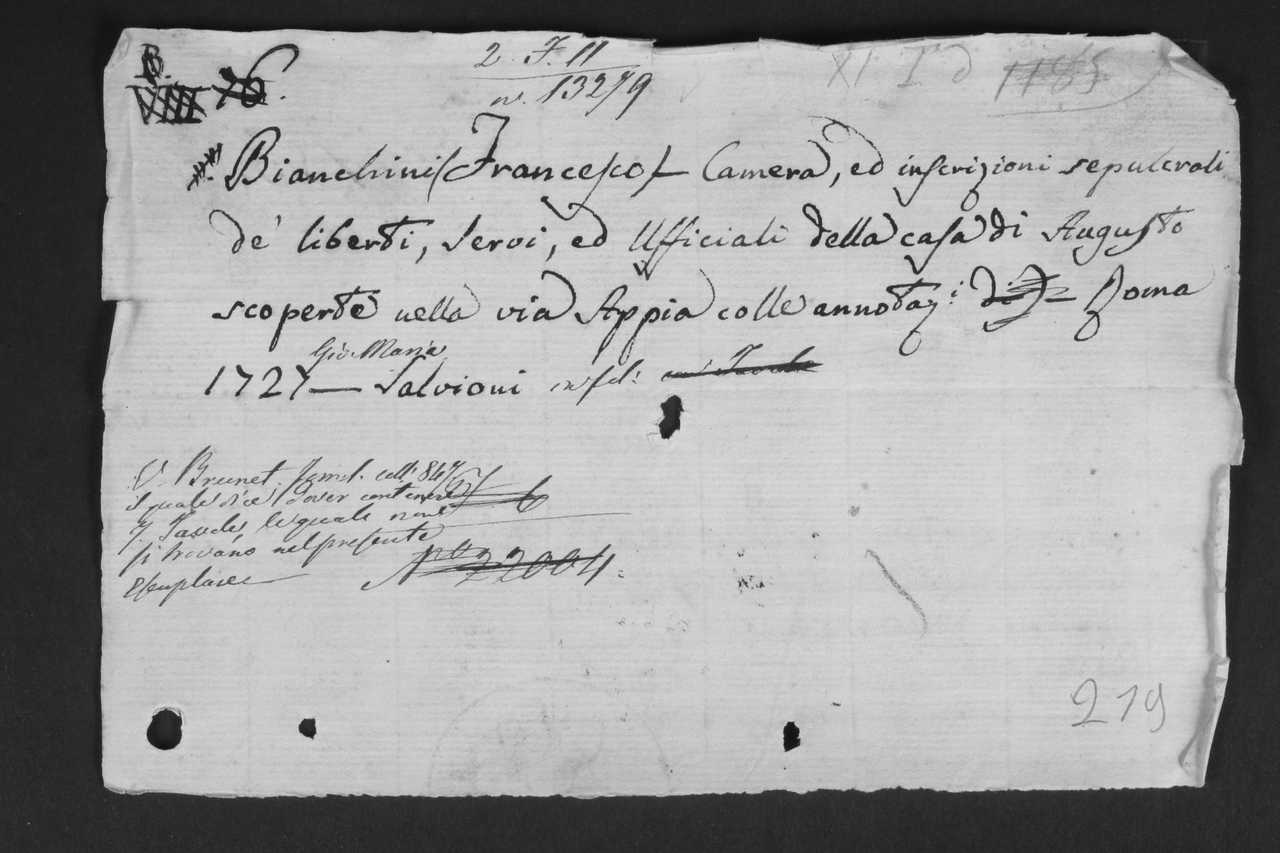 B.
VIII 76.
2. F. 11
n. 13279
XI I d 1185
Bianchini (Francesco) Camera, ed inscrizioni sepulcrali
de' liberti, servi, ed Ufficiali della casa di Augusto
scoperte nella via Appia colle annotaz.i di Roma
Gio: Maria
1727 — Salvioni in fol:
V. Brunet. Tom. 1. coll. 847
il quale dice dover contenere
7. Tavole le quali non
si trovano nel presente
Esemplare
6
N.º 22004.
219